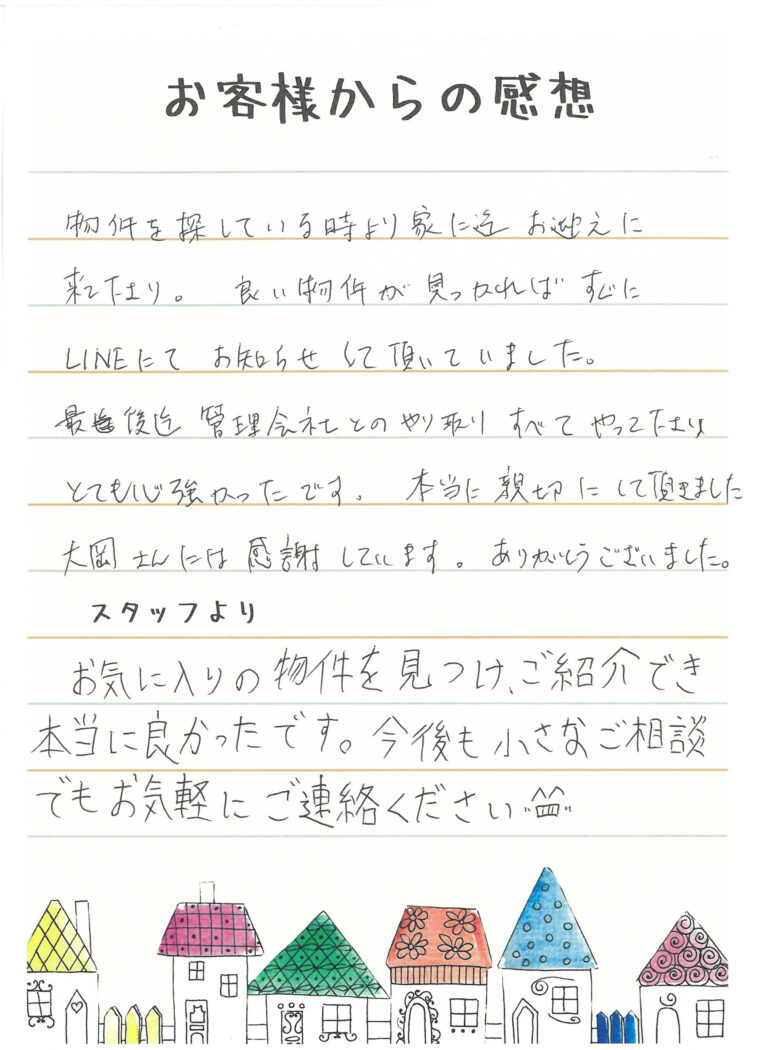 お客様からの感想
物件を探している時より家に迄 お迎えに
来てたまり。 良い物件が見つかればすぐに
LINEにて お知らせ して頂いていました。
最後迄 管理会社とのやり取り すべて やってたまり
とても心強かったです。 本当に親切にして頂きました
大岡さんには感謝しています。ありがとうございました。
スタッフより
お気に入りの物件を見つけ、ご紹介でき
本当に良かったです。今後も小さなご相談
でもお気軽にご連絡ください